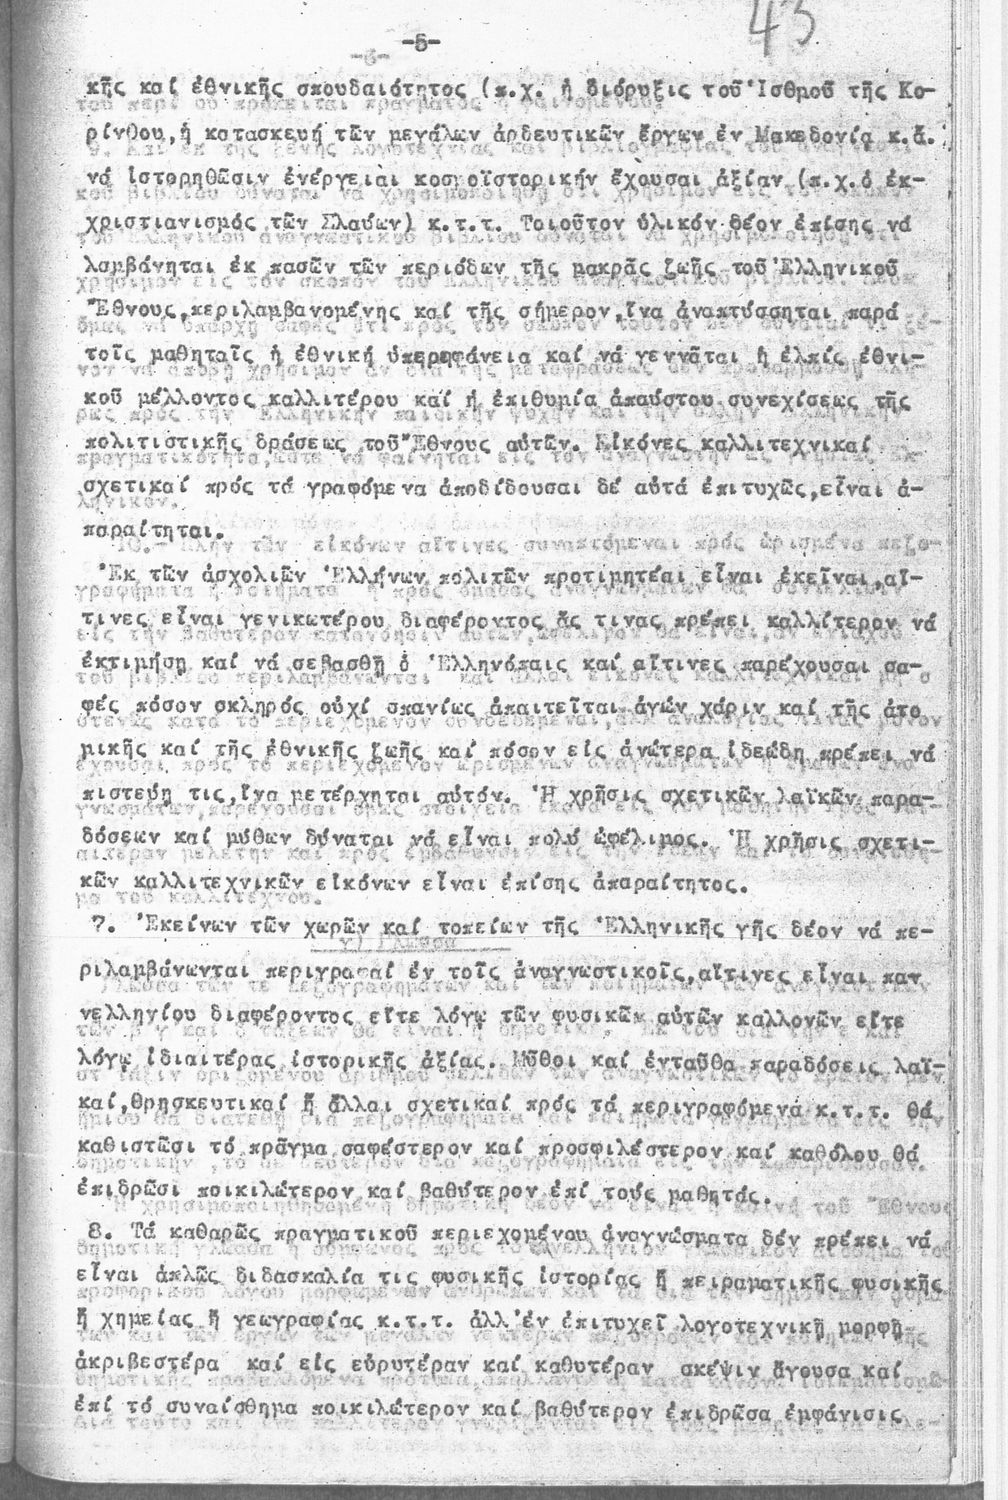 43
-5-
κῆς καί ἐθνικῆς σπουδαιότητος (π.χ. ἡ διόρυξις τοῦ Ἰσθμοῦ τῆς Κο-
ρίνθου,ἡ κατασκευή τῶν μεγάλων ἀρδευτικῶν ἔργων ἐν Μακεδονίᾳ κ.ἄ.
νά ἱστορηθῶσιν ἐνέργειαι κοσμοϊστορικήν ἔχουσαι ἀξίαν (π.χ.ὁ ἐκ-
χριστιανισμός τῶν Σλαύων) κ.τ.τ. Τοιοῦτον ὑλικόν δέον ἐπίσης νά
λαμβάνηται ἐκ πασῶν τῶν περιόδων τῆς μακρᾶς ζωῆς τοῦ Ἑλληνικοῦ
Ἔθνους,περιλαμβανομένης καί τῆς σήμερον,ἵνα ἀναπτύσσηται παρά
τοῖς μαθηταῖς ἡ ἐθνική ὑπερηφάνεια καί νά γεννᾶται ἡ ἐλπίς ἐθνι-
κοῦ μέλλοντος καλλιτέρου καί ἡ ἐπιθυμία ἀπαύστου συνεχίσεως τῆς
πολιτιστικῆς δράσεως τοῦ Ἔθνους αὐτῶν. Εἰκόνες καλλιτεχνικαί
σχετικαί πρός τά γραφόμενα ἀποδίδουσαι δέ αὐτά ἐπιτυχῶς,εἶναι ἀ-
παραίτηται.
Ἐκ τῶν ἀσχολιῶν Ἑλλήνων πολιτῶν προτιμητέαι εἶναι ἐκεῖναι,αἵ-
τινες εἶναι γενικωτέρου διαφέροντος ἅς τινας πρέπει καλλίτερον νά
ἐκτιμήσῃ καί νά σεβασθῇ ὁ Ἑλληνόπαις καί αἵτινες παρέχουσαι σα-
φές πόσον σκληρός οὐχί σπανίως ἀπαιτεῖται ἀγών χάριν καί τῆς ἀτο
μικῆς καί τῆς ἐθνικῆς ζωῆς καί πόσον εἰς ἀνώτερα ἰδεώδη πρέπει νά
πιστεύῃ τις,ἵνα μετέρχηται αὐτόν. Ἡ χρῆσις σχετικῶν λαϊκῶν παρα-
δόσεων καί μύθων δύναται νά εἶναι πολύ ὠφέλιμος. Ἡ χρῆσις σχετι-
κῶν καλλιτεχνικῶν εἰκόνων εἶναι ἐπίσης ἀπαραίτητος.
7. Ἐκείνων τῶν χωρῶν καί τοπείων τῆς Ἑλληνικῆς γῆς δέον νά πε-
ριλαμβάνωνται περιγραφαί ἐν τοῖς ἀναγνωστικοῖς,αἵτινες εἶναι παν
νελληνίου διαφέροντος εἴτε λόγῳ τῶν φυσικῶν αὐτῶν καλλονῶν εἴτε
λόγῳ ἰδιαιτέρας ἱστορικῆς ἀξίας. Μῦθοι καί ἐνταῦθα παραδόσεις λαϊ-
καί,θρησκευτικαί ἤ ἄλλαι σχετικαί πρός τά περιγραφόμενά κ.τ.τ. θά
καθιστῶσι τό πρᾶγμα σαφέστερον καί προσφιλέστερον καί καθόλου θά
ἐπιδρῶσι ποικιλώτερον καί βαθύτερον ἐπί τούς μαθητάς.
8. Τά καθαρῶς πραγματικοῦ περιεχομένου ἀναγνώσματα δέν πρέπει νά
εἶναι ἁπλῶς διδασκαλία τις φυσικῆς ἱστορίας ἤ πειραματικῆς φυσικῆς
ἤ χημείας ἤ γεωγραφίας κ.τ.τ. ἀλλ'ἐν ἐπιτυχεῖ λογοτεχνικῇ μορφῇ
ἀκριβεστέρα καί εἰς εὐρυτέραν καί καθυτέραν σκέψιν ἄγουσα καί
ἐπί τό συναίσθημα ποικιλώτερον καί βαθύτερον ἐπιδρῶσα ἐμφάνισις